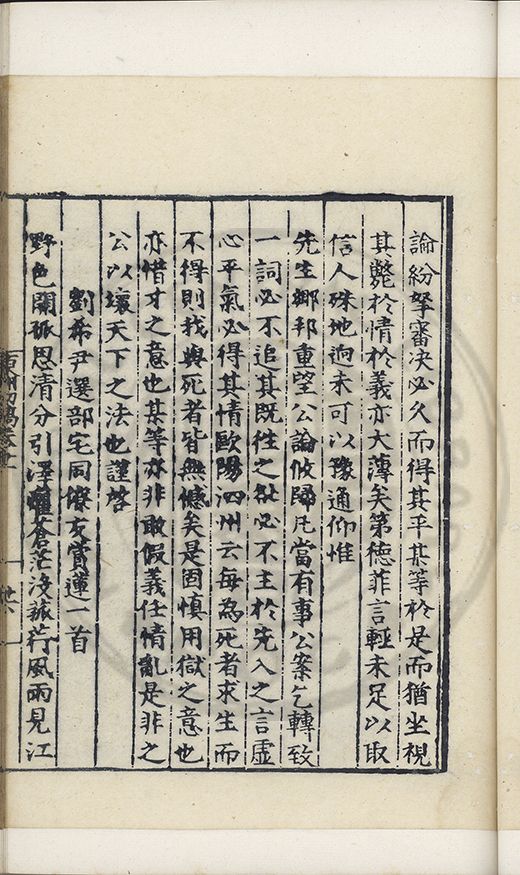 論紛拏審决必久而得其平某等於是而猶坐視
其斃於情於義亦大薄矣第德菲言輕未足以取
信人殊地逈未可以豫通仰惟
先生鄉邦重望公論攸歸凡當有事公案乞轉致
一詞必不追其既徃之愆必不主於先入之言虛
心平氣必得其情歐陽泗州云每為死者求生而
不得則我與死者皆無憾矣是固慎用獄之意也
亦惜才之意也某等亦非敢假義任情亂是非之
公以壞天下之法也謹啓
劉希尹選部宅同僚友賞蓮一首
野色開孤思清分引澤蒼茫淺菰荷風雨見江